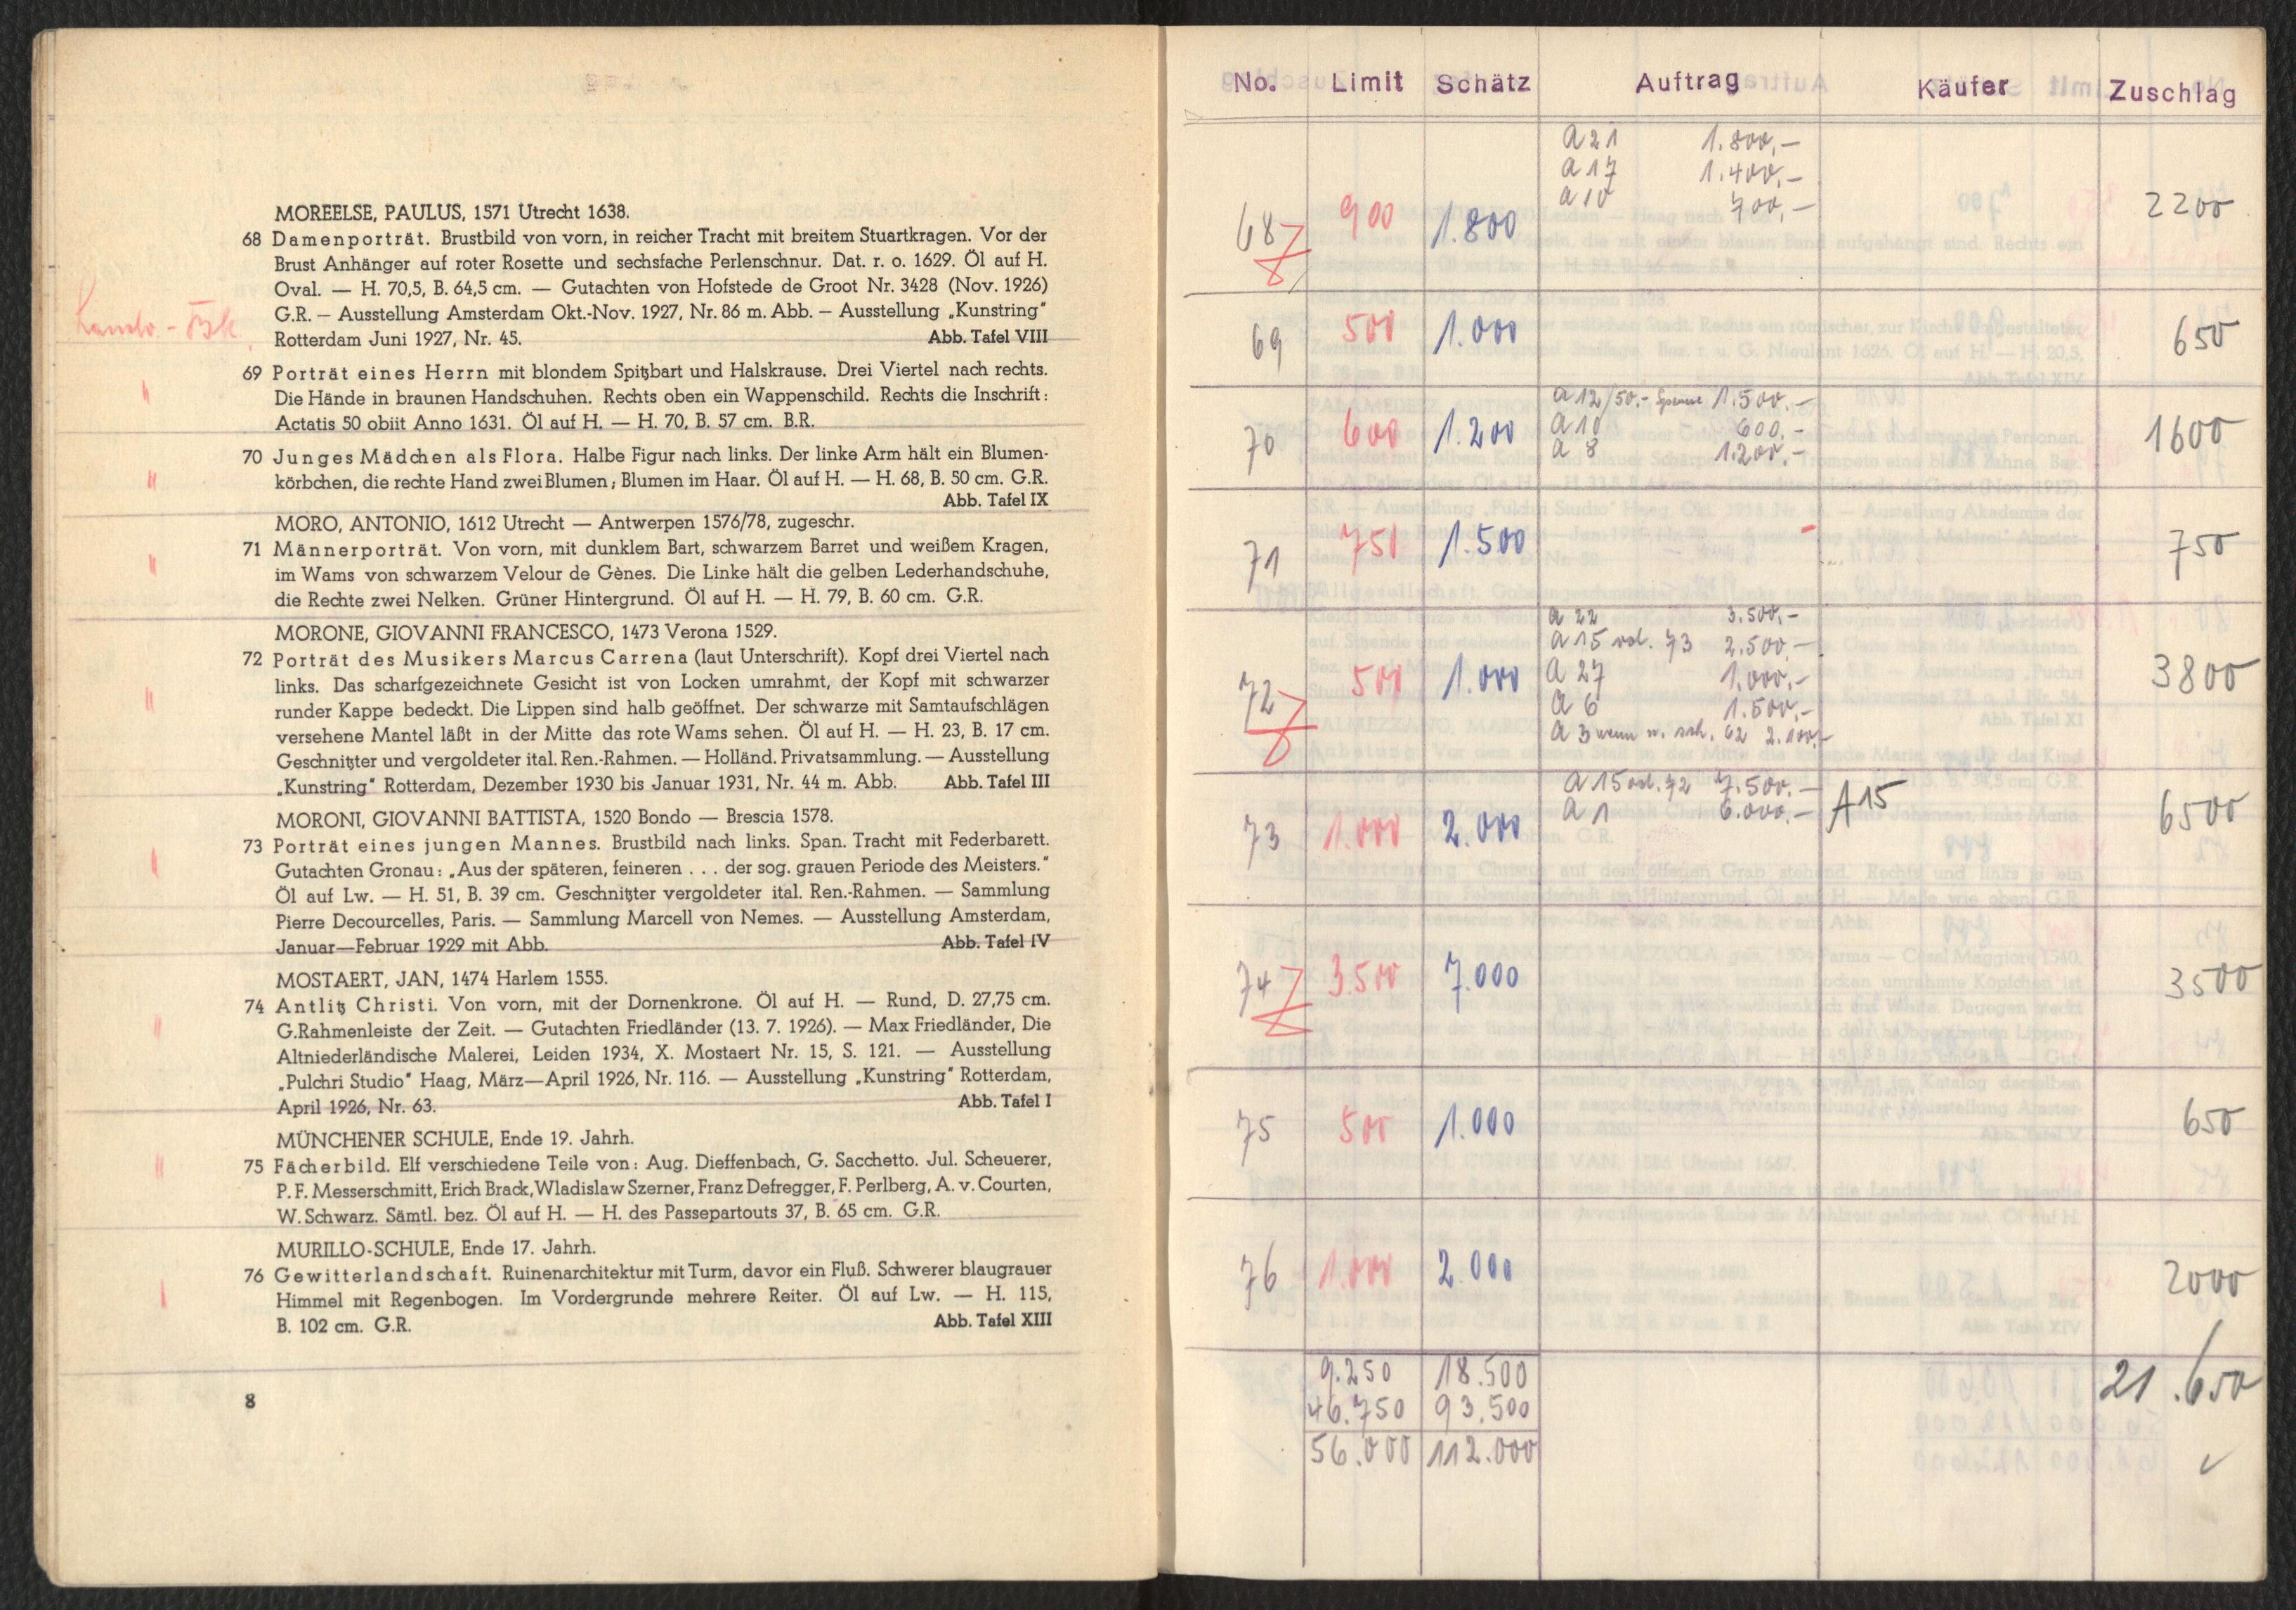 MOREELSE, PAULUS, 1571 Utrecht 1638.
68 Damenporträt. Brustbild von vorn, in reicher Tracht mit breitem Stuartkragen. Vor der
Brust Anhänger auf roter Rosette und sechsfache Perlenschnur. Dat. r. o. 1629. Öl auf H.
Oval. — H. 70,5, B. 64,5 cm. — Gutachten von Hofstede de Groot Nr. 3428 (Nov. 1926)
G.R. — Ausstellung Amsterdam Okt.-Nov. 1927, Nr. 86 m. Abb. — Ausstellung „Kunstring"
Rotterdam Juni 1927, Nr. 45. Abb. Tafel VIII
69 Porträt eines Herrn mit blondem Spitzbart und Halskrause. Drei Viertel nach rechts.
Die Hände in braunen Handschuhen. Rechts oben ein Wappenschild. Rechts die Inschrift:
Actatis 50 obiit Anno 1631. Öl auf H. — H. 70, B. 57 cm. B.R.
70 Junges Mädchen als Flora. Halbe Figur nach links. Der linke Arm hält ein Blumen-
körbchen, die rechte Hand zwei Blumen; Blumen im Haar. Öl auf H. — H. 68, B. 50 cm. G.R.
Abb. Tafel IX
MORO, ANTONIO, 1612 Utrecht — Antwerpen 1576/78, zugeschr.
71 Männerporträt. Von vorn, mit dunklem Bart, schwarzem Barret und weißem Kragen,
im Wams von schwarzem Velour de Gènes. Die Linke hält die gelben Lederhandschuhe,
die Rechte zwei Nelken. Grüner Hintergrund. Öl auf H. — H. 79, B. 60 cm. G.R.
MORONE, GIOVANNI FRANCESCO, 1473 Verona 1529.
72 Porträt des Musikers Marcus Carrena (laut Unterschrift). Kopf drei Viertel nach
links. Das scharfgezeichnete Gesicht ist von Locken umrahmt, der Kopf mit schwarzer
runder Kappe bedeckt. Die Lippen sind halb geöffnet. Der schwarze mit Samtaufschlägen
versehene Mantel läßt in der Mitte das rote Wams sehen. Öl auf H. — H. 23, B. 17 cm.
Geschnitzter und vergoldeter ital. Ren.-Rahmen. — Holländ. Privatsammlung. — Ausstellung
„Kunstring" Rotterdam, Dezember 1930 bis Januar 1931, Nr. 44 m. Abb. Abb. Tafel III
MORONI, GIOVANNI BATTISTA, 1520 Bondo — Brescia 1578.
73 Porträt eines jungen Mannes. Brustbild nach links. Span. Tracht mit Federbarett.
Gutachten Gronau: „Aus der späteren, feineren . . . der sog. grauen Periode des Meisters."
Öl auf Lw. — H. 51, B. 39 cm. Geschnitzter vergoldeter ital. Ren.-Rahmen. — Sammlung
Pierre Decourcelles, Paris. — Sammlung Marcell von Nemes. — Ausstellung Amsterdam,
Januar—Februar 1929 mit Abb. Abb. Tafel IV
MOSTAERT, JAN, 1474 Harlem 1555.
74 Antlitz Christi. Von vorn, mit der Dornenkrone. Öl auf H. — Rund, D. 27,75 cm.
G.Rahmenleiste der Zeit. — Gutachten Friedländer (13. 7. 1926). — Max Friedländer, Die
Altniederländische Malerei, Leiden 1934, X. Mostaert Nr. 15, S. 121. — Ausstellung
„Pulchri Studio" Haag, März—April 1926, Nr. 116. — Ausstellung „Kunstring" Rotterdam,
April 1926, Nr. 63. Abb. Tafel I
MÜNCHENER SCHULE, Ende 19. Jahrh.
75 Fächerbild. Elf verschiedene Teile von: Aug. Dieffenbach, G. Sacchetto. Jul. Scheuerer,
P. F. Messerschmitt, Erich Brack, Wladislaw Szerner, Franz Defregger, F. Perlberg, A. v. Courten,
W. Schwarz. Sämtl. bez. Öl auf H. — H. des Passepartouts 37, B. 65 cm. G.R.
MURILLO-SCHULE, Ende 17. Jahrh.
76 Gewitterlandschaft. Ruinenarchitektur mit Turm, davor ein Fluß. Schwerer blaugrauer
Himmel mit Regenbogen. Im Vordergrunde mehrere Reiter. Öl auf Lw. — H. 115,
B. 102 cm. G.R. Abb. Tafel XIII
8
No. Limit Schätz Auftrag Käufer Zuschlag
a 21 1.800,—
a 17 1.400,—
a 10 700,—
68 900 1.800 2200
69 500 1.000 650
a 12/50.- 1.500.—
a 10 600.-
a 8 1.200.-
70 600 1.200 1600
71 750 1.500 750
a 22 3.500.-
a 15 od. 73 2.500,—
a 27 1.000,-
a 6 1.500,-
a 3 wenn n. 62 2.100,-
72 500 1.000 3800
a 15 od. 72 7.500.—
a 1 6.000,— A 15
73 1.000 2.000 6500
74 3.500 7.000 3500
75 500 1.000 650
76 1.000 2.000 2000
9.250 18.500 21.650
46.750 93.500
56.000 112.000